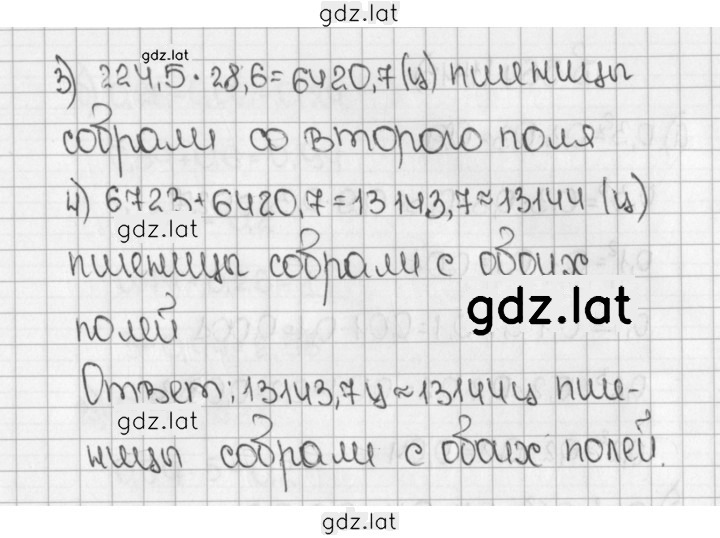 gdz.lat
gdz.lat
3) 224,5 · 28,6 = 6420,7 (ц) пшеницы
собрали со второго поля
4) 6723 + 6420,7 = 13143,7 ≈ 13144 (ц)
gdz.lat
пшеницы собрали с обоих
gdz.lat
полей
Ответ: 13143,7 ц ≈ 13144 ц пше-
gdz.lat
ницы собрали с обоих полей.
gdz.lat